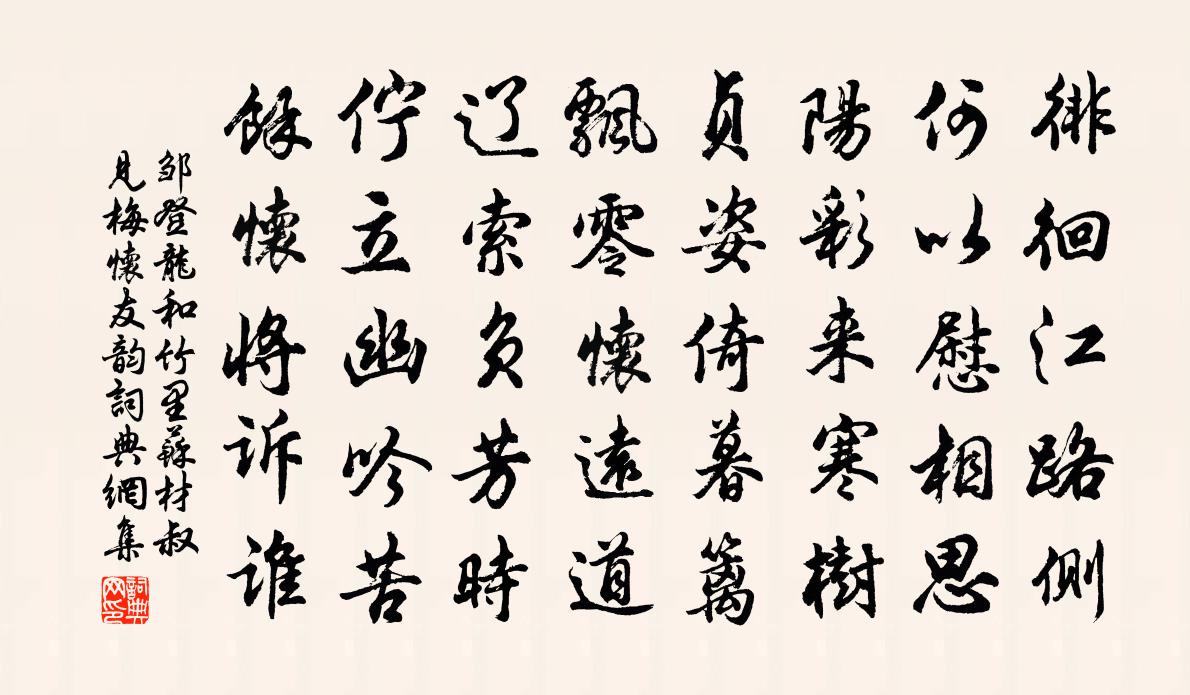 徘徊江路側
何以慰相思
陽彩来寒樹
貞姿倚暮篱
飄零懷遠道
辽索負芳時
佇立幽吟苦
餘懷將訴誰
邹登龍和竹里蘇材叔
見梅懷友韵詞典網集
詞典网印